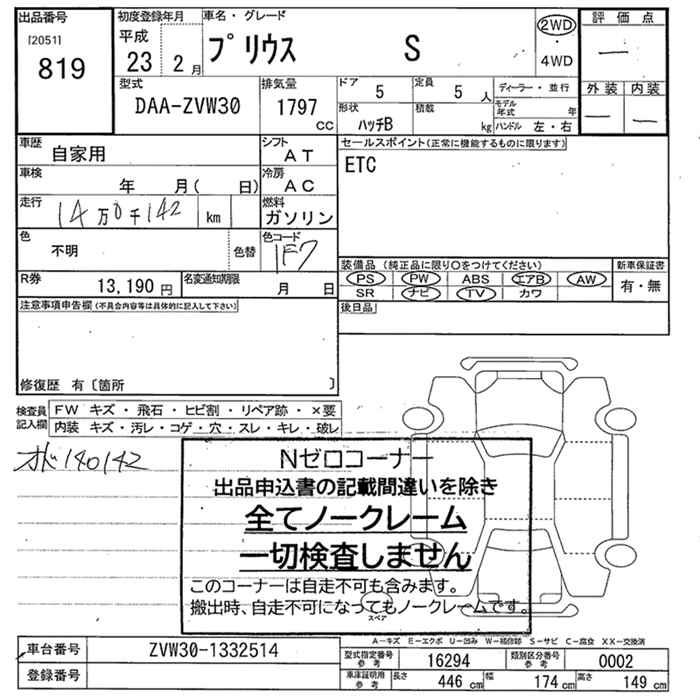 出品番号
[2051]
819
初度登録年月
平成
23年 2月
車名・グレード
プリウス S
2WD
・
4WD
評価点
―
外装 内装
― ―
型式
DAA-ZVW30
排気量
1797 CC
ドア 5
定員 5 人
形状 ハッチB
積載 kg
ディーラー・並行
モデル年式 年
ハンドル 左・右
車歴
自家用
シフト
AT
車検
年 月( 日)
冷房
AC
走行
14万0千142 km
燃料
ガソリン
色
不明
色替
色コード
1F7
R券
13,190 円
名変通知期限
月 日
セールスポイント(正常に機能するものに限ります)
ETC
装備品 (純正品に限り○をつけてください)
PS PW ABS エアB AW
SR ナビ TV カワ
新車保証書
有・無
後日品
注意事項申告欄(不具合内容等は具体的に記入して下さい)
修復歴 有〔箇所 〕
検査員記入欄
FW キズ・飛石・ヒビ割・リペア跡・×要
内装 キズ・汚レ・コゲ・穴・スレ・キレ・破レ
オド140142
Nゼロコーナー
出品申込書の記載間違いを除き
全てノークレーム
一切検査しません
このコーナーは自走不可も含みます。
搬出時、自走不可になってもノークレームです。
スペア
A-キズ E-エクボ U-凹み W-補修跡 S-サビ C-腐食 XX-交換済
車台番号 ZVW30-1332514
登録番号
型式指定番号参考 16294
類別区分番号参考 0002
車庫証明用参考 長さ 446 cm 幅 174 cm 高さ 149 cm